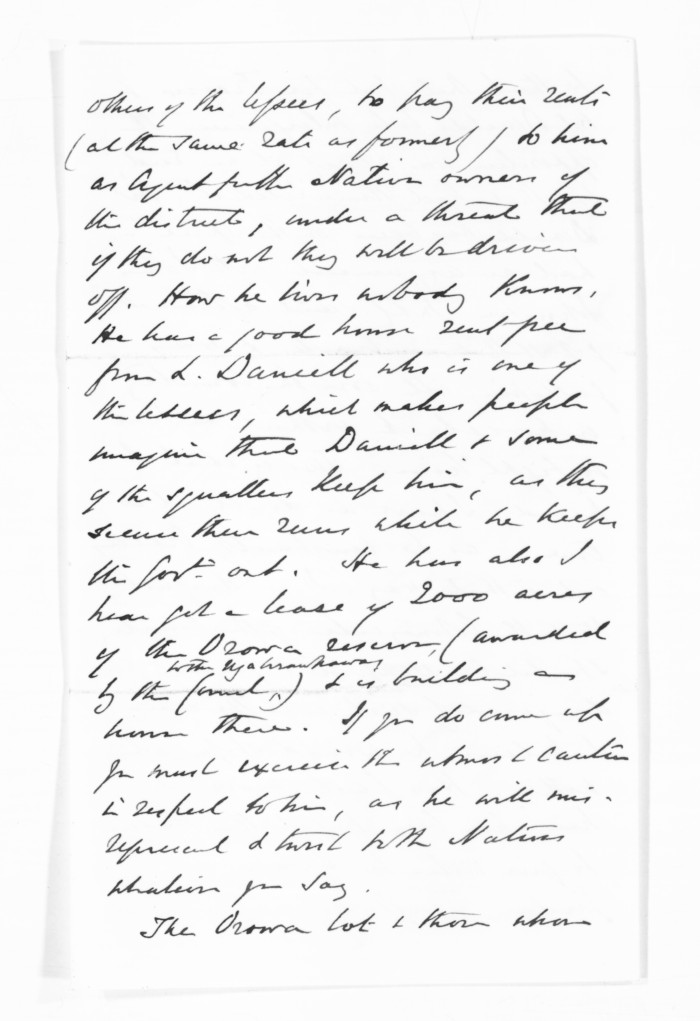 others of the lessees, to pay their rents
(at the same rate as formerly) to him
as Agent for the Native owners of
the district, under a threat that
if they do not they will be driven
off. How he lives nobody knows.
He has a good house rent free
from L. Daniell who is one of
the lessees, which makes people
imagine that Daniell & some
of the squatters keep him, as they
secure their runs while he keeps
the Govt. out. He has also I
hear got a lease of 2000 acres
of the Orowa reserve, (awarded
to the Ngatiraukawas
by the Court) & is building a
house there. If you do come up
you must exercise the utmost caution
in respect to him, as he will mis-
represent & twist to the Natives
whatever you say.
The Orowa lot & those whom